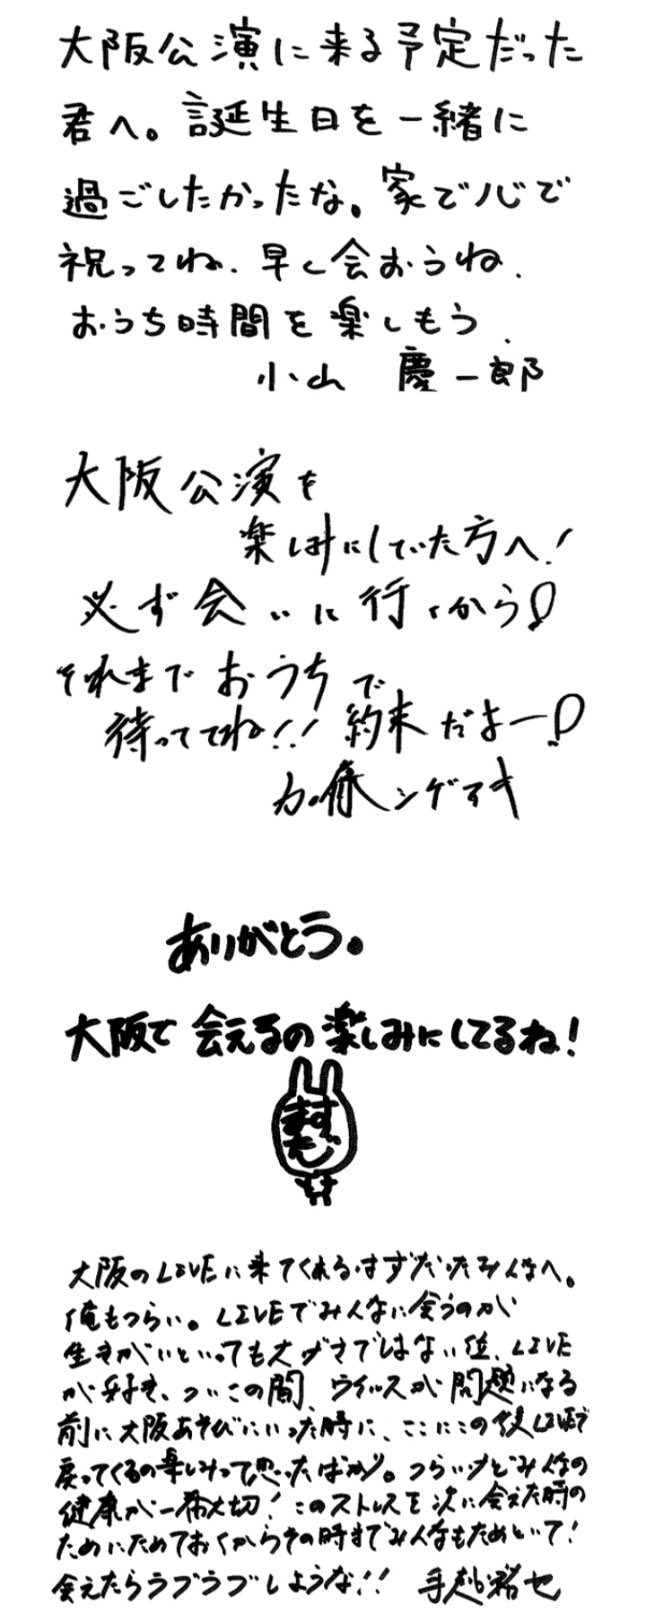 大阪公演に来る予定だった
君へ。誕生日を一緒に
過ごしたかったな。家で心で
祝ってね. 早く会おうね.
おうち時間を楽しもう.
小山 慶一郎
大阪公演を
楽しみにしていた方へ!
必ず会いに行くから!
それまでおうちで
待っててね!! 約束だよー!
加藤シゲアキ
ありがとう。
大阪で会えるの楽しみにしてるね!
ます
だ
大阪のLIVEに来てくれるはずだったみんなへ。
俺もつらい。LIVEでみんなに会うのが
生きがいといっても大げさではない位、LIVE
が好き、ついこの間、ウイルスが問題になる
前に大阪あそびにいった時に、ここにこの後LIVEで
戻ってくるの楽しみって思ったばかり。つらいけどみんなの
健康が一番大切! このストレスを次に会えた時の
ためにためておくからその時までみんなもためといて!
会えたらラブラブしような!! 手越祐也